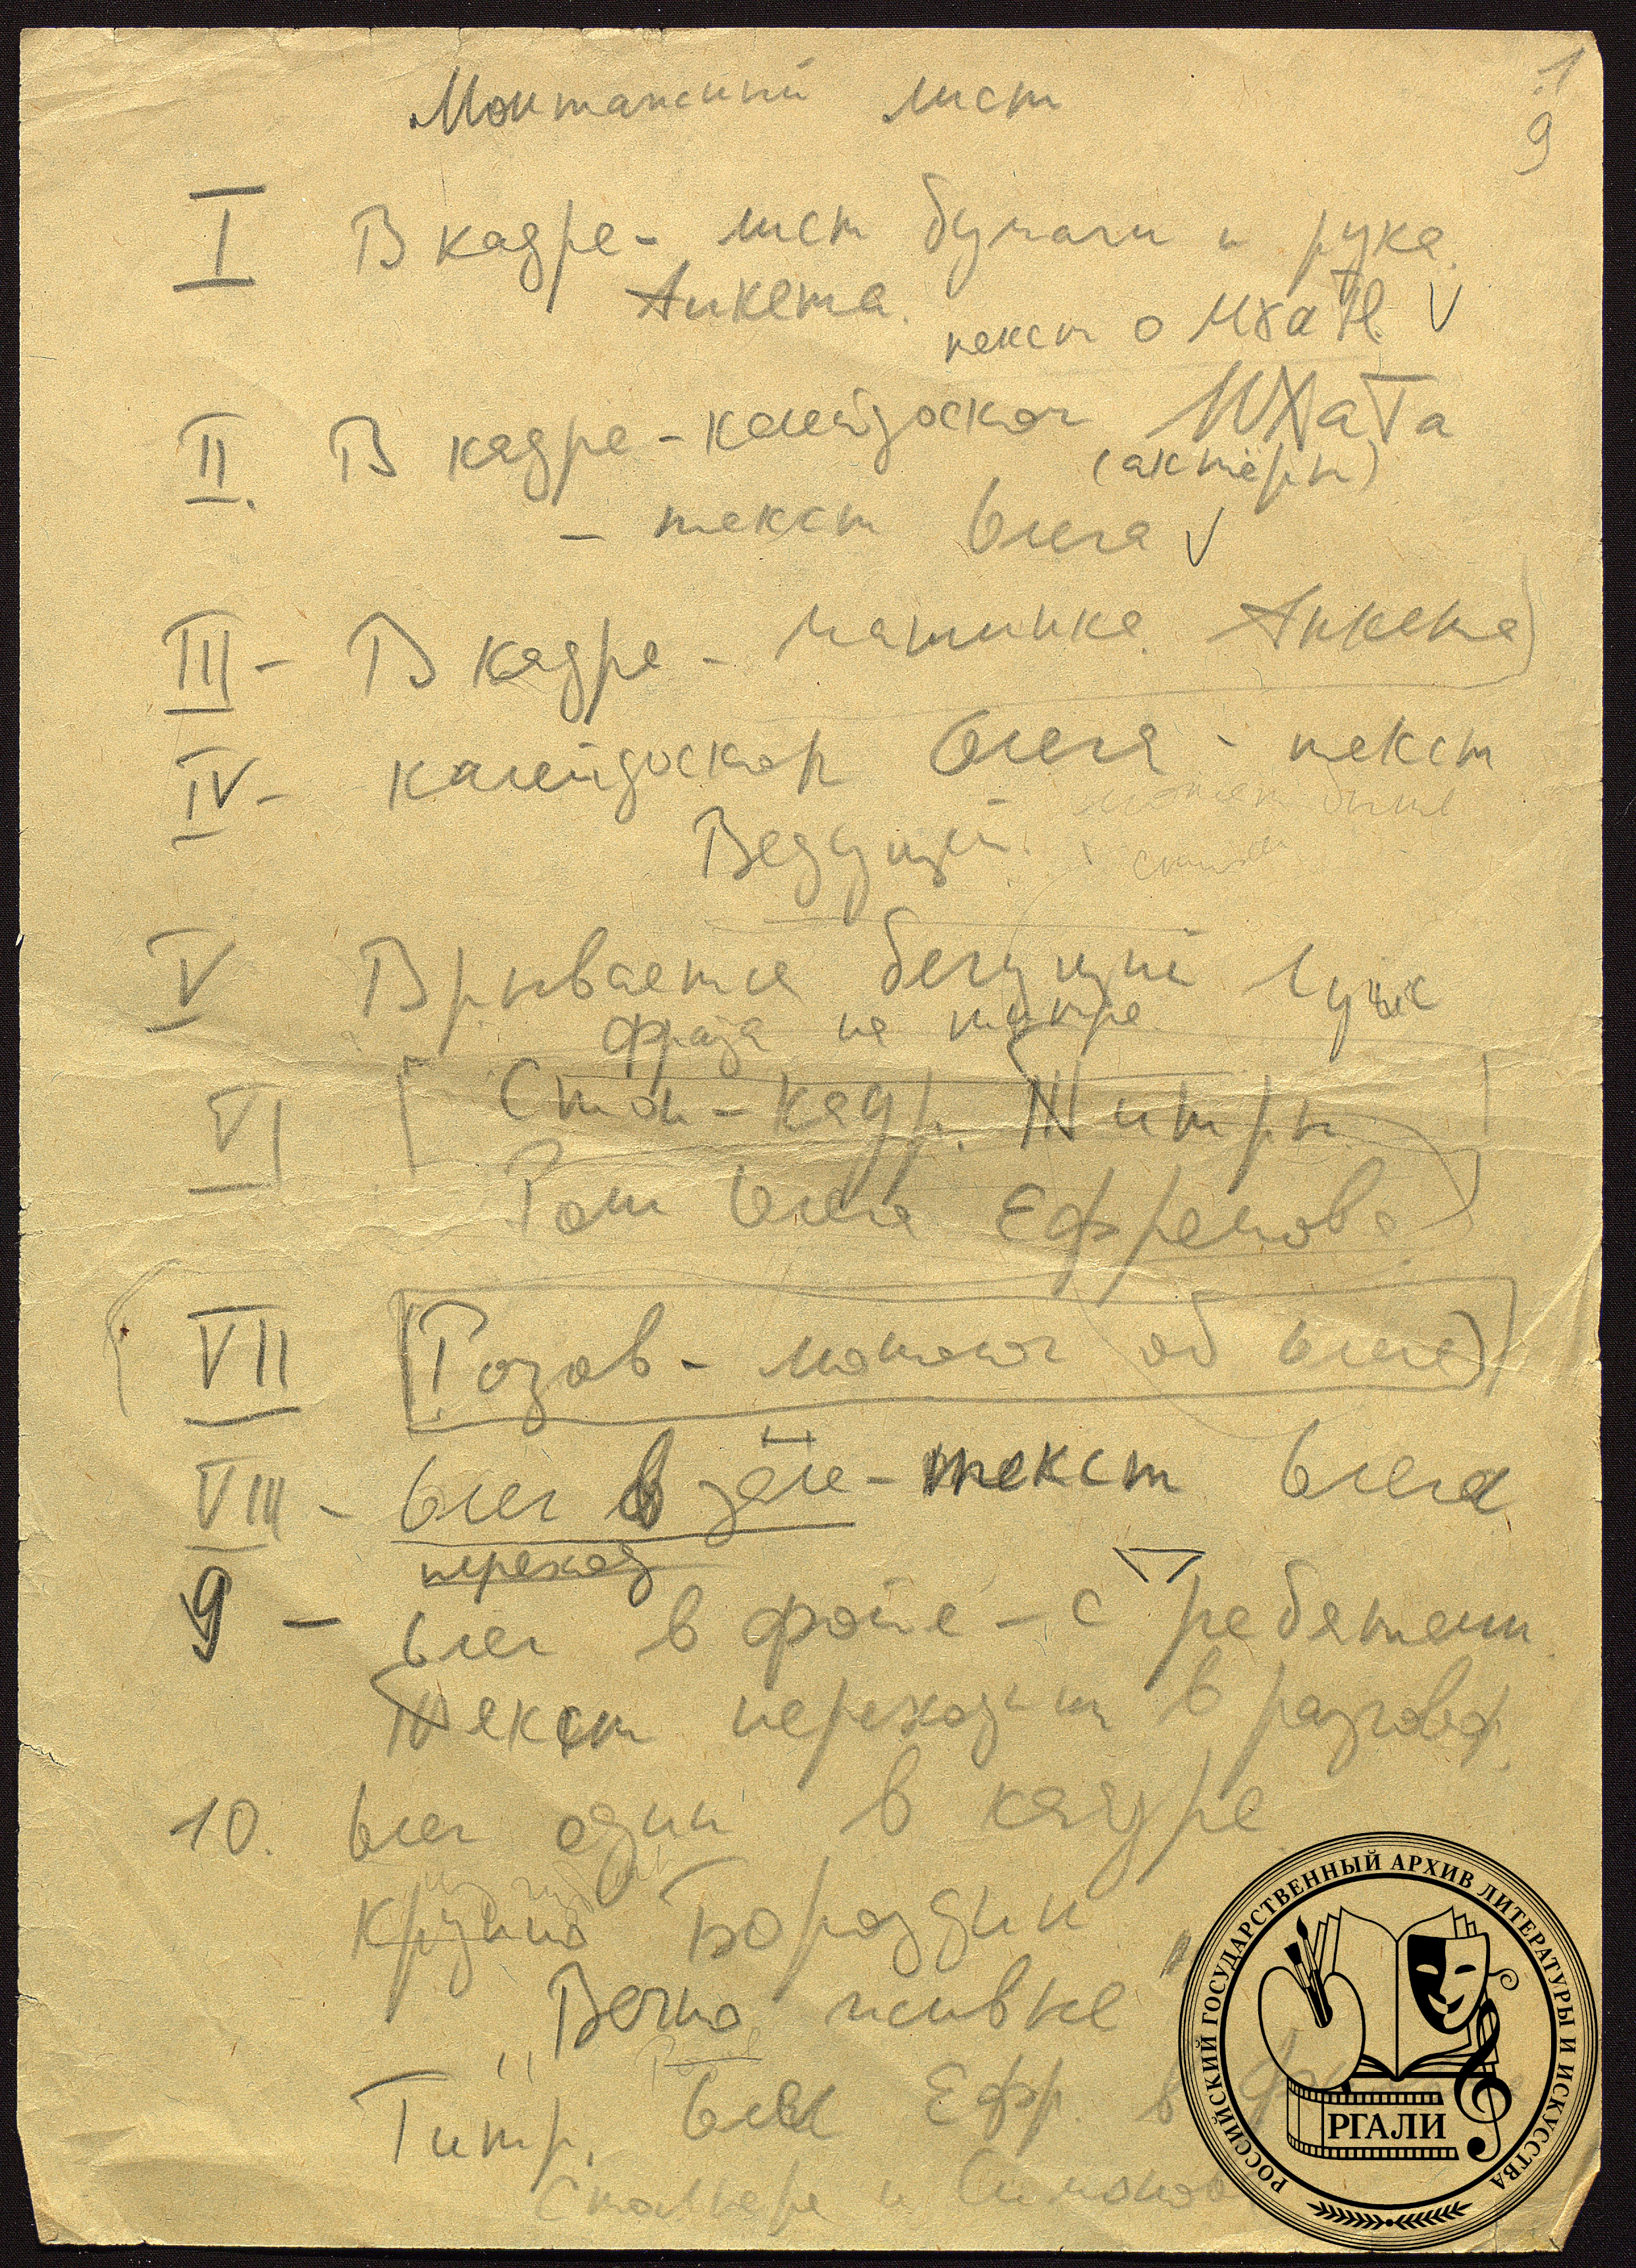 1
9
Монтажный лист
I В кадре - лист бумаги и рука.
Анкета.
текст о МХаТе. V
II. В кадре - калейдоскоп МХаТа
(актёры)
- текст Олега V
III - В кадре - машинка. Анкета
IV - калейдоскоп Олега - текст
может быть
Ведущий.
V Врывается бегущий Гуж
фраза на титре
VI Стоп-кадр. Титры.
Рот Олега Ефремова
VII Розов - монолог об Олеге
VIII - Олег в зале - текст Олега
переход
9 - Олег в фойе - с ребятами.
Текст переходит в разговор.
10. Олег один в кадре
крупно Бородин
"Вечно живые"
Титр. Олег Ефр. в
Сталкере и Симонов
РОССИЙСКИЙ ГОСУДАРСТВЕННЫЙ АРХИВ ЛИТЕРАТУРЫ И ИСКУССТВА
РГАЛИ